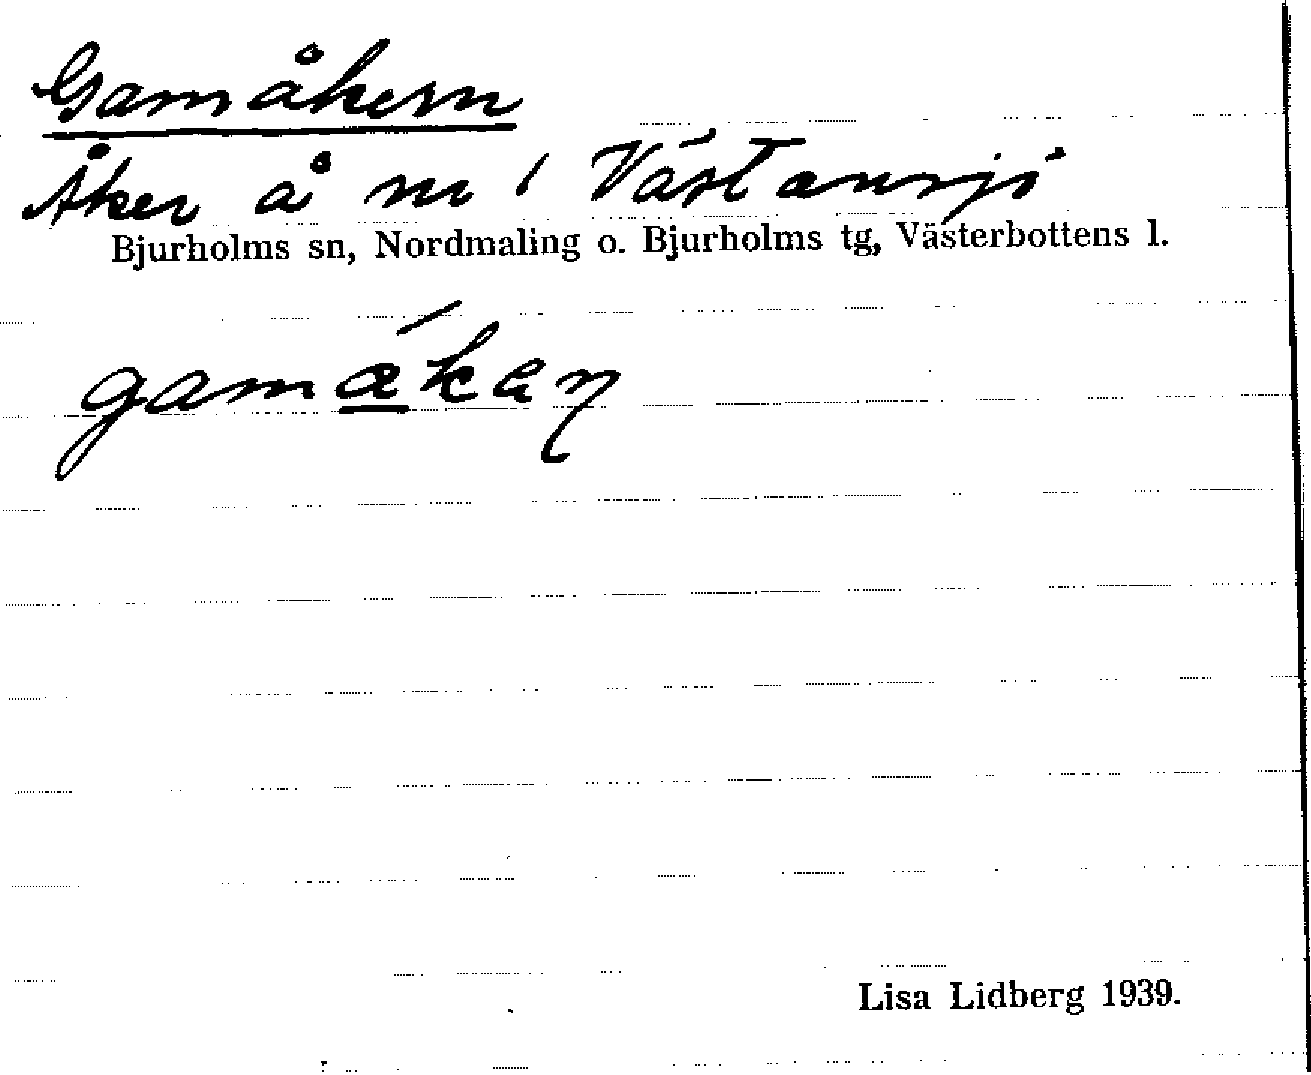 Gamåkern
Åker å nr 1 Västansjö
Bjurholms sn, Nordmaling o. Bjurholms tg, Västerbottens l.
gamákaɳ
Lisa Lidberg 1939.